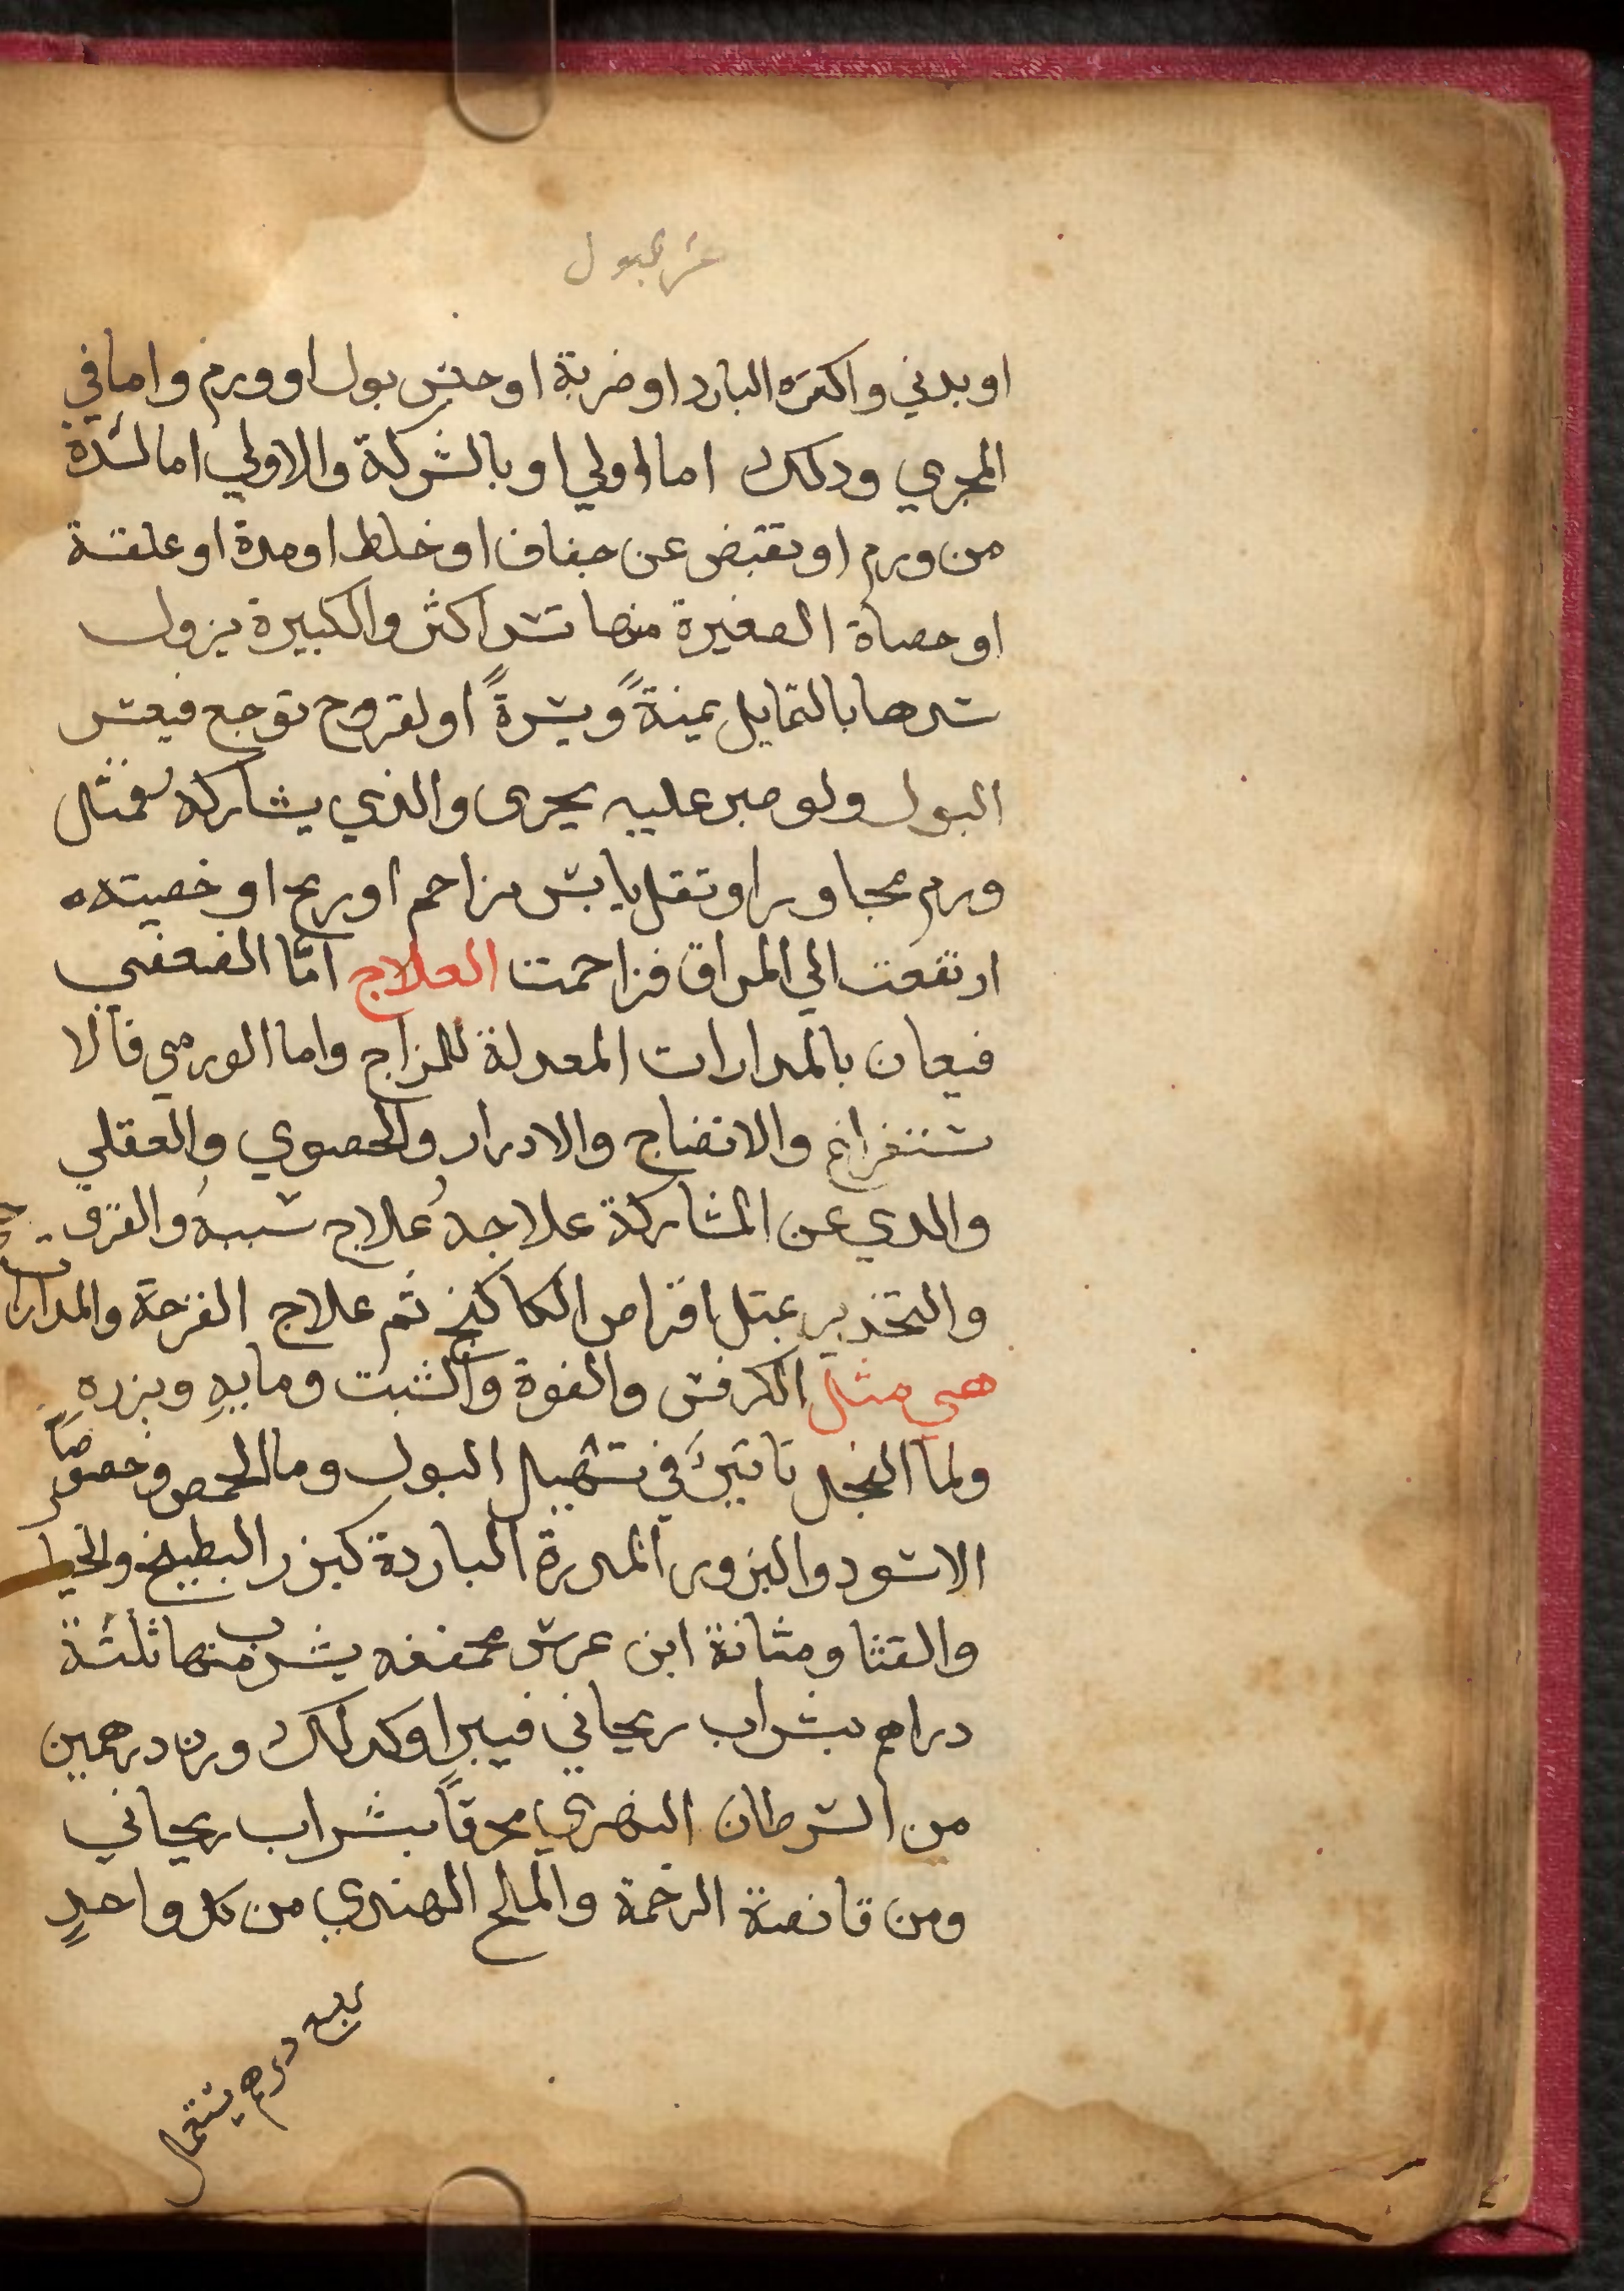 عسر البول
او بدني واكثره البارد او ضربة او حبس بول او ورم واما في
المجري ودلك اما اولي او بالشركة والاولي اما لسدة
من ورم او تقبض عن جفاف او خلط او مدة او علقة
او حصاة الصغيرة منها تسد اكثر والكبيرة يزول
سدها بالتمايل يمنةً ويسرةً او لقروح توجع فيعسر
البول ولو صبر عليه يجرى والذي يشاركه فمثل
ورم مجاور او ثقل يابس مزاحم او ريح او خصيته
ارتفعت الي المراق فزاحمت العلاج امّا الضعفي
فيعان بالمدارات المعدلة للمزاج واما الورمي فالا
ستفراغ والانضاج والادرار والحصوي والعقلي
والدي عن المشاركة علاجه علاج سببه والقرو
والتخدير بمثل اقراص الكاكنج ثم علاج القرحة والمدارات
هي مثل الكرفس والفوة والشبت ومايه وبزره
ولما الفجل تاثيرٌ في تسهيل البول وما الحمص وخصوصًا
الاسود والبزور المدرة الباردة كبزر البطيخ والخيار
والقثا ومثانة ابن عرس مجففه يشرب منها ثلثة
دراهم بشراب ريحاني فيبرا وكدلك وزن درهمين
من السرطان النهري محرقاً بشراب ريحاني
ومن قانصة الرخمة والملح الهندي من كل واحدٍ
درهم يستعمل